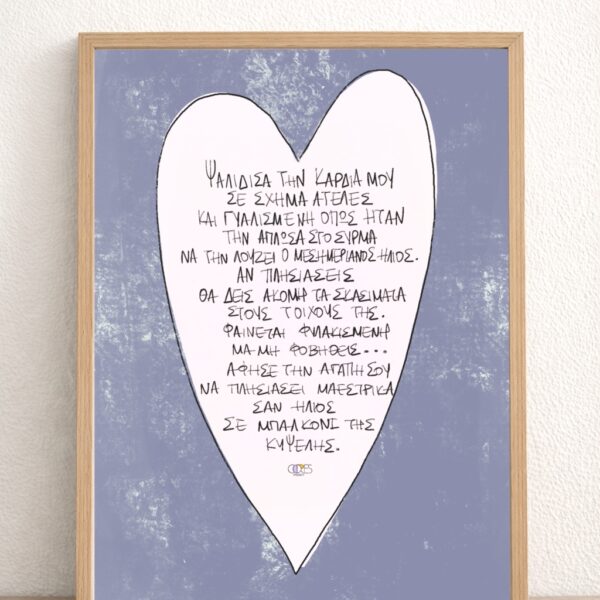 ΨΑΛΙΔΙΣΑ ΤΗΝ ΚΑΡΔΙΑ ΜΟΥ
ΣΕ ΣΧΗΜΑ ΑΤΕΛΕΣ
ΚΑΙ ΓΥΑΛΙΣΜΕΝΗ ΟΠΩΣ ΗΤΑΝ
ΤΗΝ ΑΠΛΩΣΑ ΣΤΟ ΣΥΡΜΑ
ΝΑ ΤΗΝ ΛΟΥΖΕΙ Ο ΜΕΣΗΜΕΡΙΑΝΟΣ ΗΛΙΟΣ.
ΑΝ ΠΛΗΣΙΑΣΕΙΣ
ΘΑ ΔΕΙΣ ΑΚΟΜΗ ΤΑ ΣΚΑΣΙΜΑΤΑ
ΣΤΟΥΣ ΤΟΙΧΟΥΣ ΤΗΣ.
ΦΑΙΝΕΤΑΙ ΦΥΛΑΚΙΣΜΕΝΗ
ΜΑ ΜΗ ΦΟΒΗΘΕΙΣ...
ΑΦΗΣΕ ΤΗΝ ΑΓΑΠΗ ΣΟΥ
ΝΑ ΠΛΗΣΙΑΣΕΙ ΜΑΕΣΤΡΙΚΑ
ΣΑΝ ΗΛΙΟΣ
ΣΕ ΜΠΑΛΚΟΝΙ ΤΗΣ
ΚΥΨΕΛΗΣ.